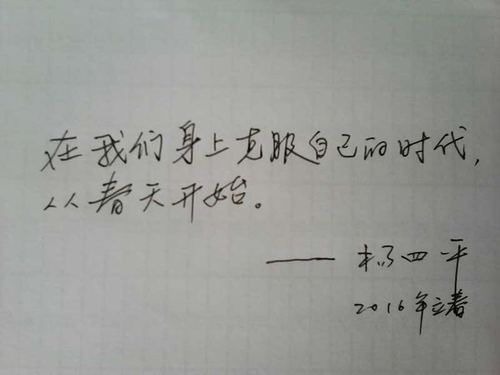 在我们身上克服自己的时代,
从春天开始。
—— 杨四平
2016年立春